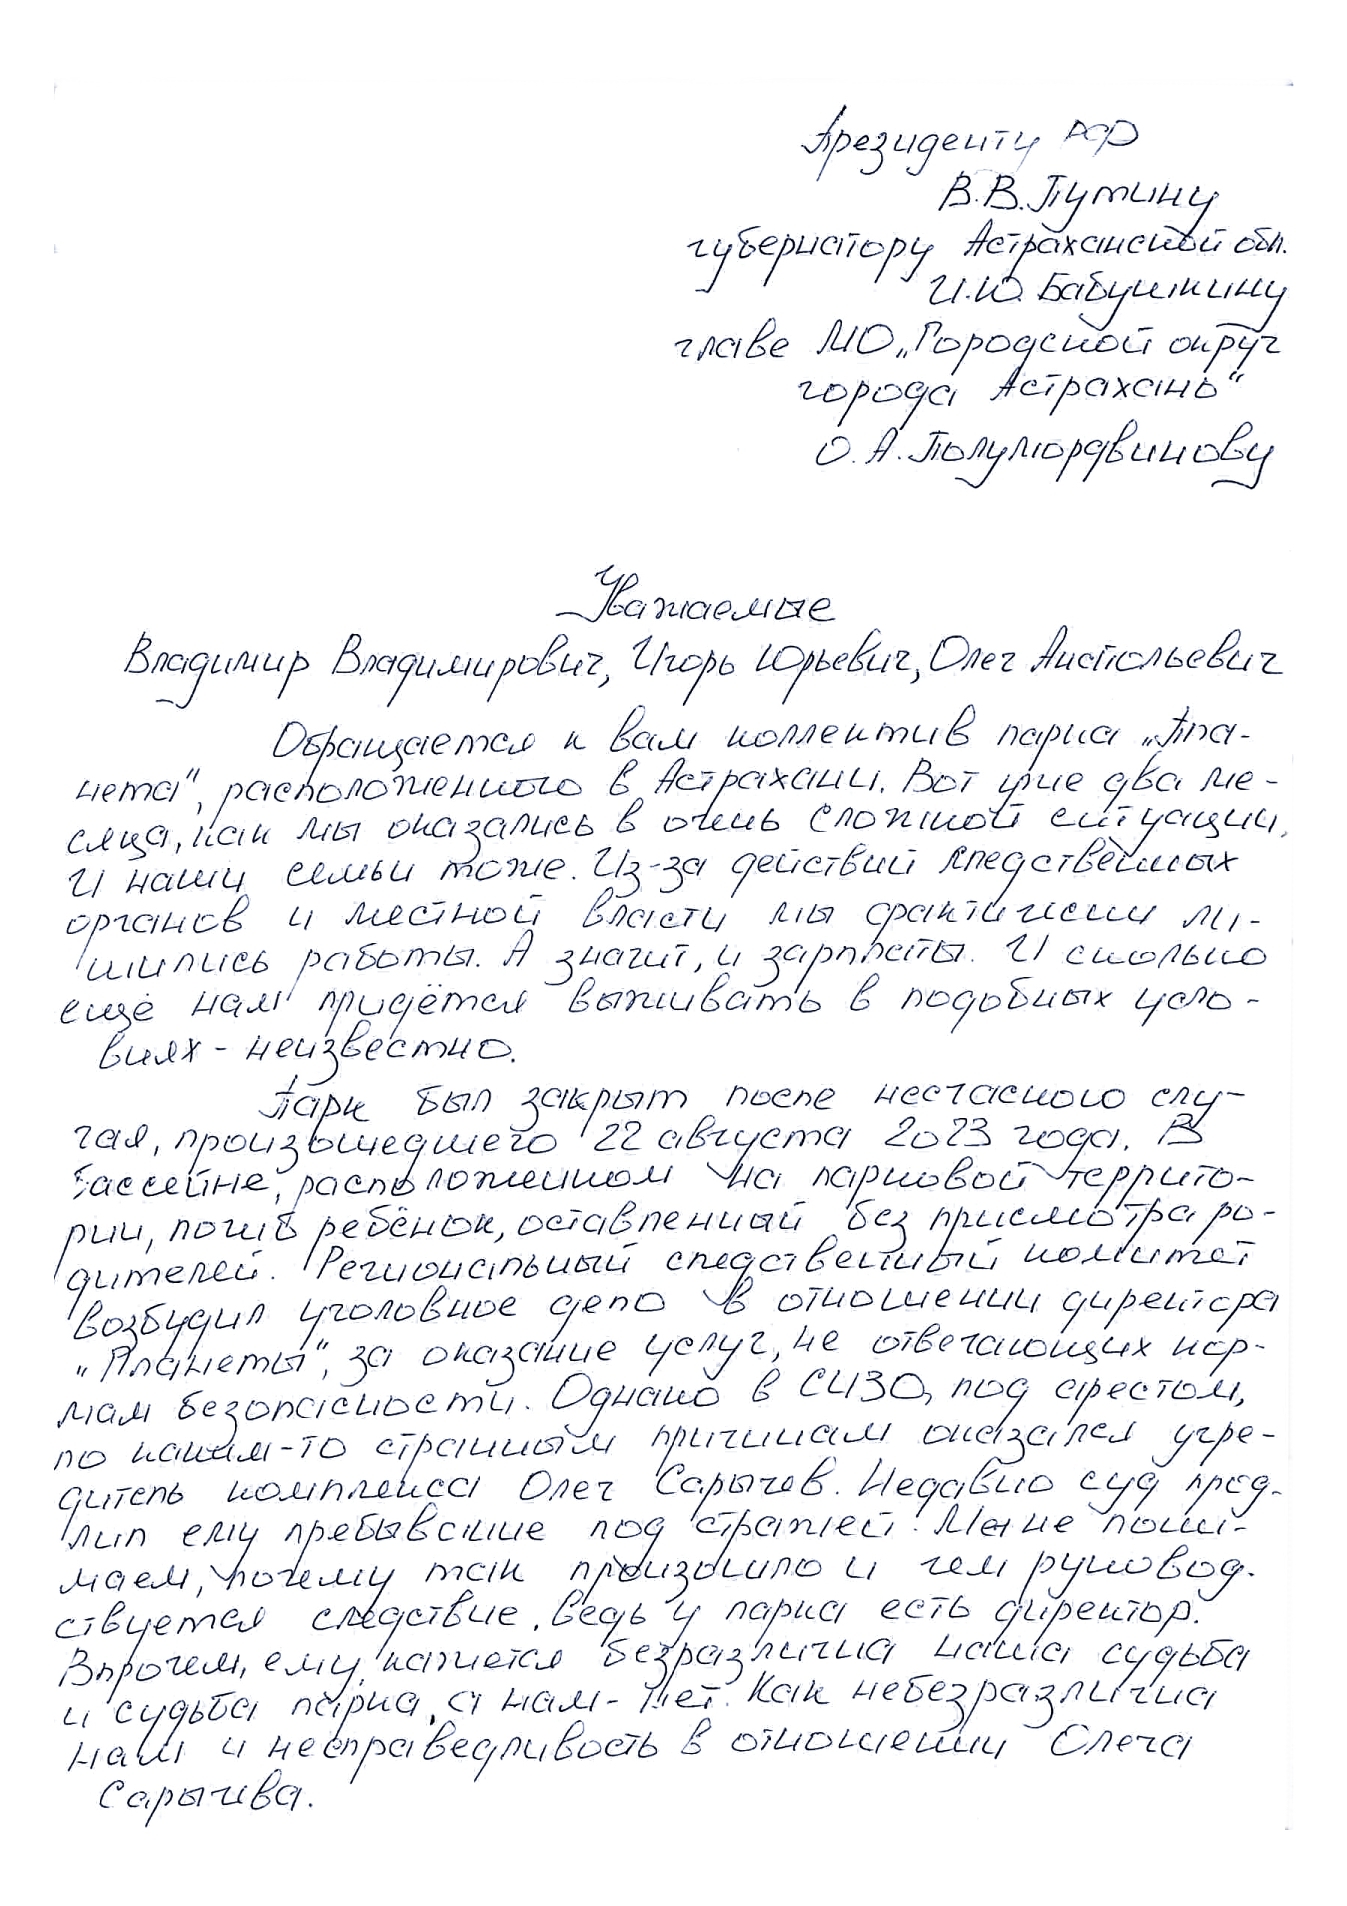 Президенту РФ
В.В. Путину
губернатору Астраханской обл.
И.Ю. Бабушкину
главе МО „Городской округ
города Астрахань"
О.А. Полумордвинову
Уважаемые
Владимир Владимирович, Игорь Юрьевич, Олег Анатольевич
Обращается к вам коллектив парка „Пла-
нета", расположенного в Астрахани. Вот уже два ме-
сяца, как мы оказались в очень сложной ситуации,
и наши семьи тоже. Из-за действий следственных
органов и местной власти мы фактически ли-
шились работы. А значит, и зарплаты. И сколько
ещё нам придётся выживать в подобных усло-
виях - неизвестно.
Парк был закрыт после несчасного слу-
чая, произошедшего 22 августа 2023 года. В
бассейне, расположенном на парковой террито-
рии, погиб ребёнок, оставленный без присмотра ро-
дителей. Региональный следственный комитет
возбудил уголовное дело в отношении директора
„Планеты", за оказание услуг, не отвечающих нор-
мам безопасности. Однако в СИЗО, под арестом,
по каким-то странным причинам оказался учре-
дитель комплекса Олег Сарычев. Недавно суд прод-
лил ему пребывание под стражей. Мы не пони-
маем, почему так произошло и чем руковод-
ствуется следствие. Ведь у парка есть директор.
Впрочем, ему кажется безразлична наша судьба
и судьба парка, а нам - нет. Как небезразлична
нам и несправедливость в отношении Олега
Сарычева.